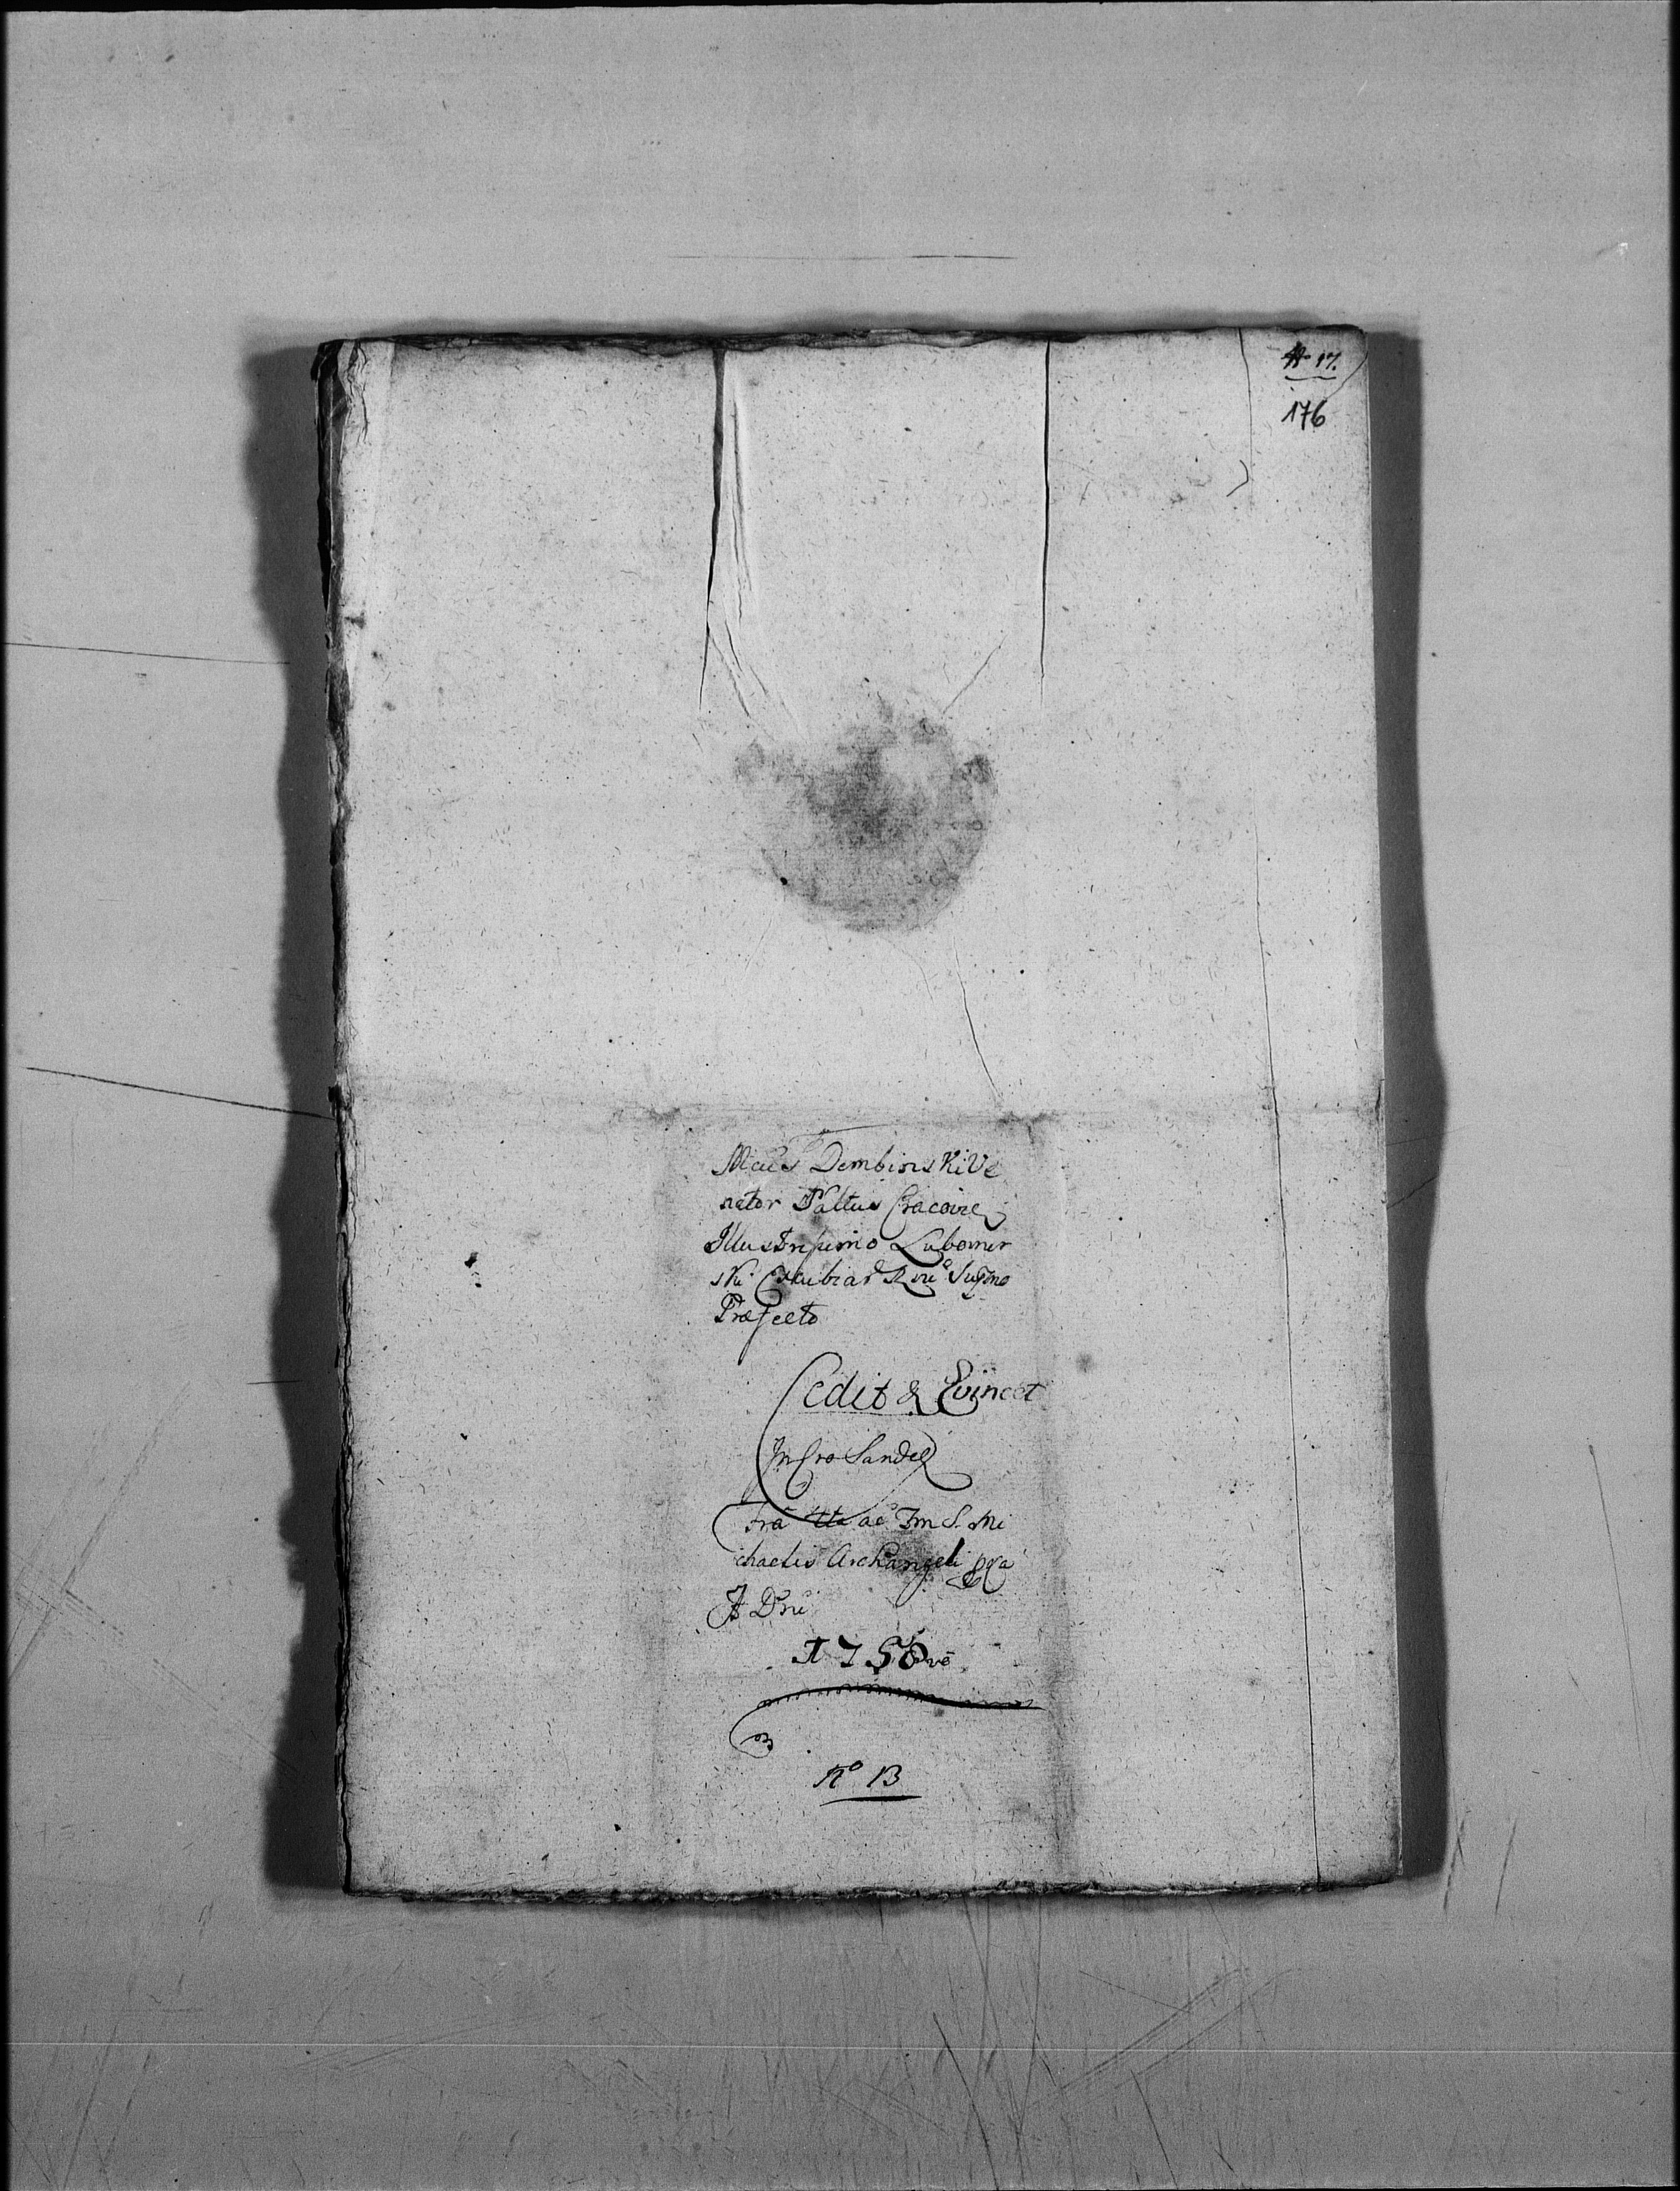 176
Mcus Dembinski Ve
nator Pałtus Cracovie
Illustrissimo Lubomir
ski Excubiar Rni Supmo
Præfecto
Cedit & Evincet
In Cro Sandec
Fra ac Fm S. Mi
chaelis Archangeli
A Dni
1758
No 13